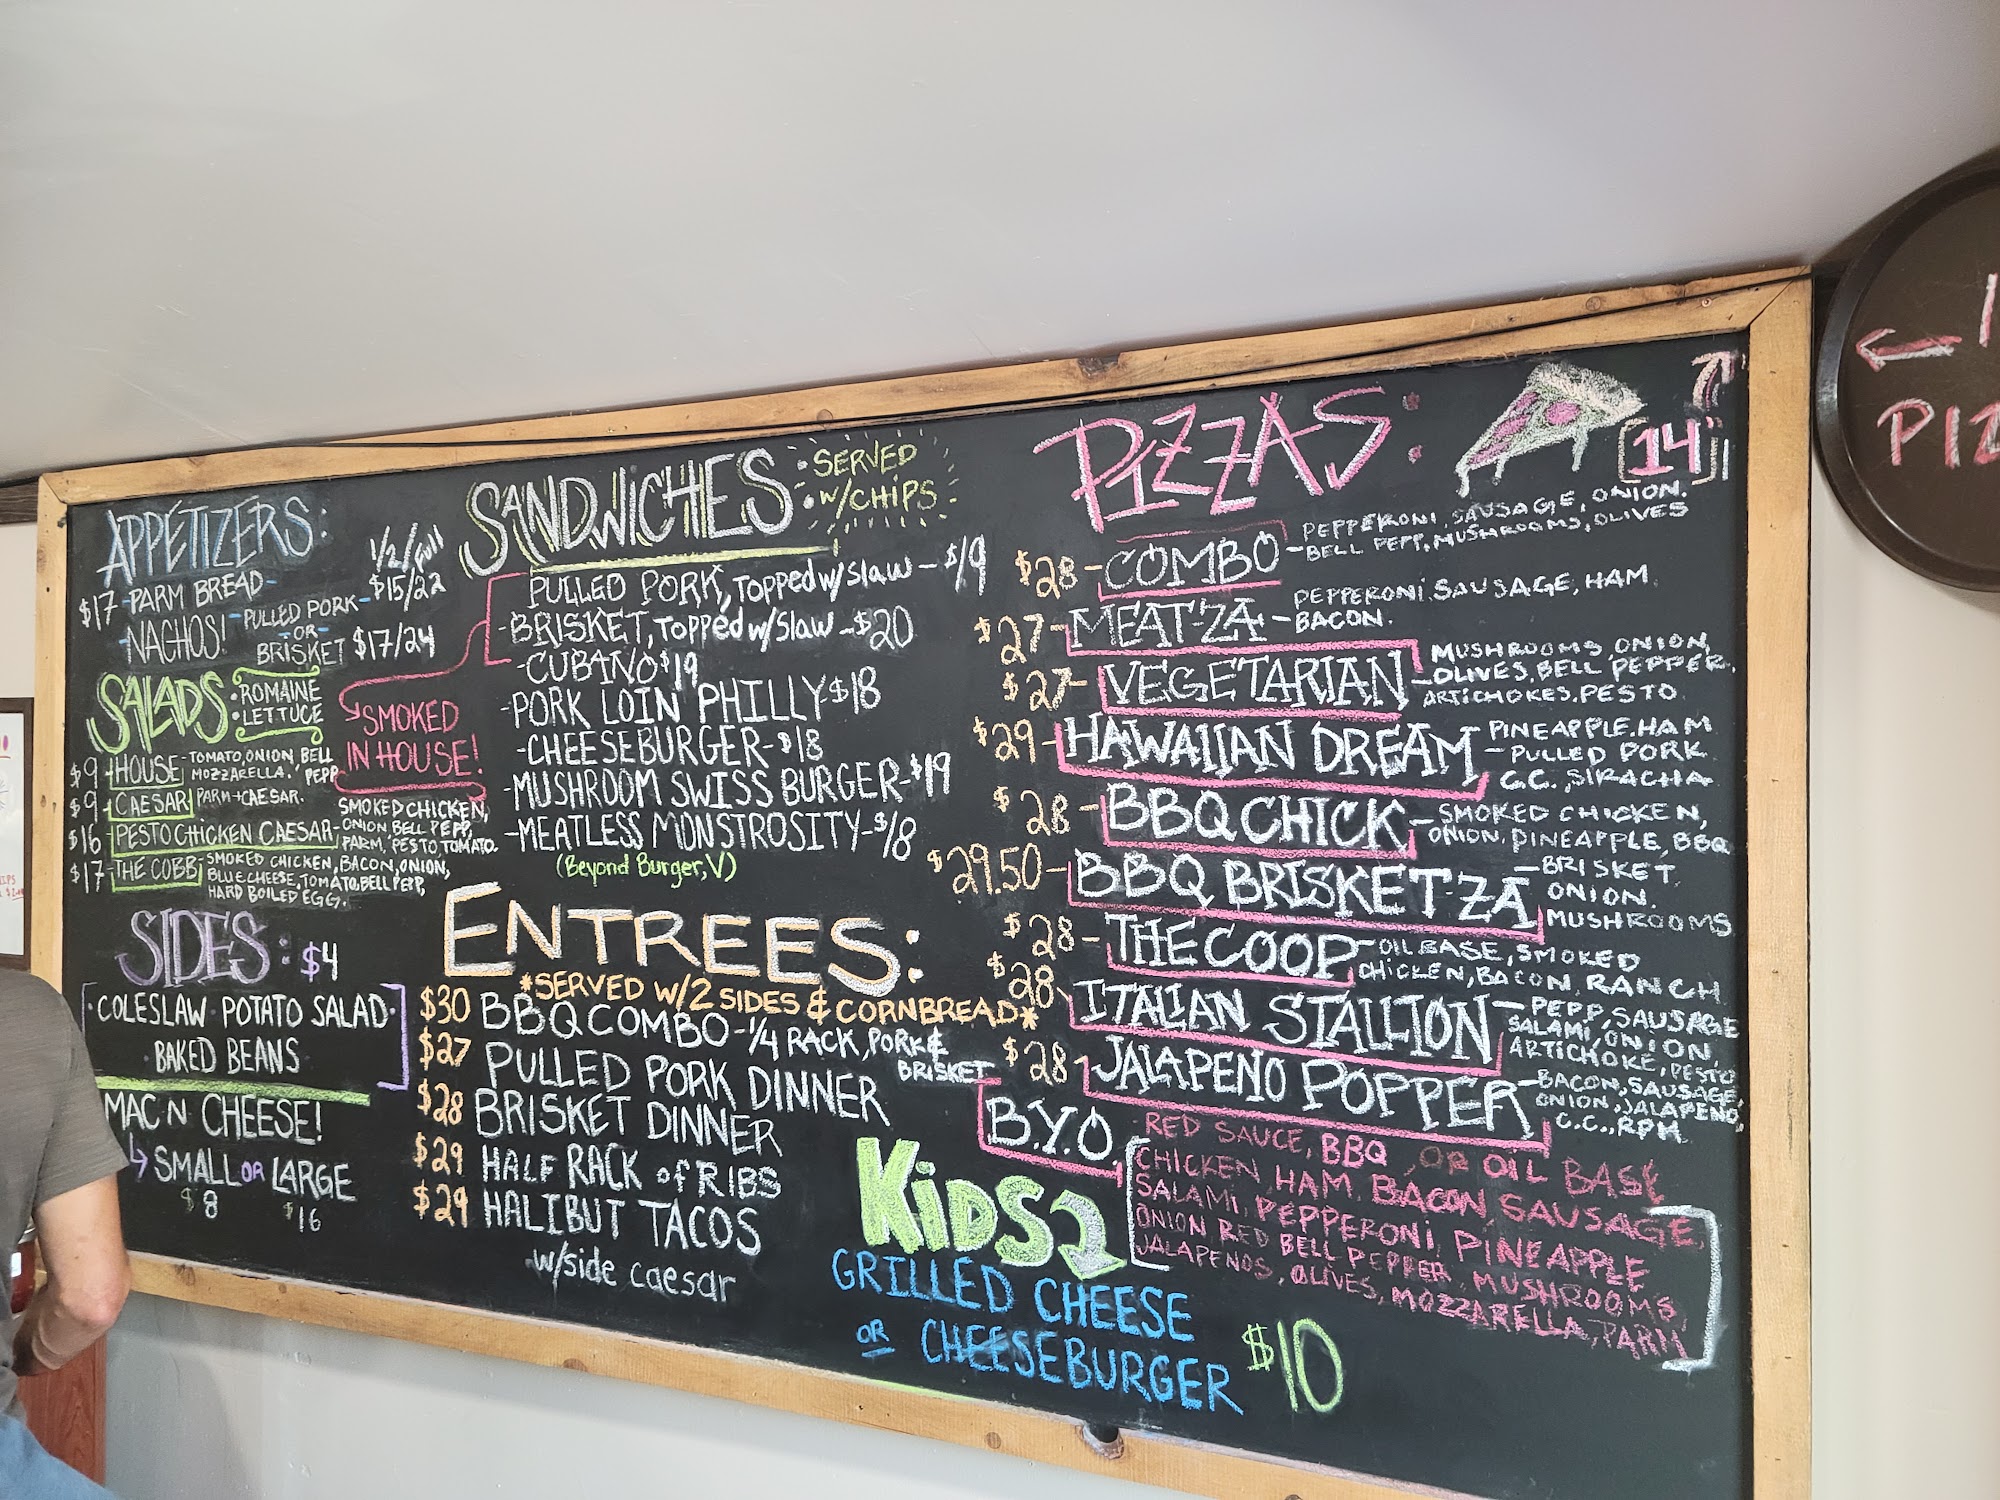 APPETIZERS:
1/2/full
$17-PARM BREAD-
-NACHOS! -PULLED PORK- $15/22
-OR-
BRISKET $17/24
SALADS
·ROMAINE
·LETTUCE
$9-HOUSE-TOMATO, ONION, BELL
MOZZARELLA. PEPP
$9-CAESAR PARM+CAESAR.
$16-PESTO CHICKEN CAESAR-SMOKED CHICKEN,
ONION BELL PEPP,
PARM, PESTO, TOMATO.
$17-THE COBB-SMOKED CHICKEN, BACON, ONION,
BLUE CHEESE, TOMATO, BELL PEPP,
HARD BOILED EGG.
SIDES: $4
·COLESLAW·POTATO SALAD·
BAKED BEANS
MAC N CHEESE!
SMALL OR LARGE
$8 $16
SANDWICHES: SERVED
w/CHIPS
PULLED PORK, TOPPED w/SLAW-$19
-BRISKET, TOPPED w/SLAW-$20
SMOKED
IN HOUSE!
-CUBANO $19
-PORK LOIN PHILLY-$18
-CHEESEBURGER-$18
-MUSHROOM SWISS BURGER-$19
-MEATLESS MONSTROSITY-$18
(Beyond Burger, V)
ENTREES:
*SERVED W/2 SIDES & CORNBREAD*
$30 BBQ COMBO-1/4 RACK, PORK &
BRISKET
$27 PULLED PORK DINNER
$28 BRISKET DINNER
$29 HALF RACK of RIBS
$29 HALIBUT TACOS
w/side caesar
KiDS
GRILLED CHEESE
OR CHEESEBURGER $10
PIZZAS: 14"
$28-COMBO-PEPPERONI, SAUSAGE, ONION.
BELL PEPP, MUSHROOMS, OLIVES
$27-MEAT-ZA-PEPPERONI, SAUSAGE, HAM
BACON.
$27-VEGETARIAN-MUSHROOMS, ONION,
OLIVES, BELL PEPPER,
ARTICHOKES, PESTO
$29-HAWAIIAN DREAM-PINEAPPLE, HAM
PULLED PORK
C.C., SIRACHA
$28-BBQ CHICK-SMOKED CHICKEN,
ONION, PINEAPPLE, BBQ
$29.50-BBQ BRISKET-ZA-BRISKET
ONION.
MUSHROOMS
$28-THE COOP-OIL BASE, SMOKED
CHICKEN, BACON, RANCH
$28-ITALIAN STALLION-PEPP, SAUSAGE
SALAMI, ONION,
ARTICHOKE, PESTO
$28-JALAPENO POPPER-BACON, SAUSAGE,
ONION, JALAPENO,
C.C., RPH
B.Y.O RED SAUCE, BBQ, OR OIL BASE
CHICKEN, HAM, BACON, SAUSAGE,
SALAMI, PEPPERONI, PINEAPPLE
ONION, RED BELL PEPPER, MUSHROOMS,
JALAPENOS, OLIVES, MOZZARELLA, PARM